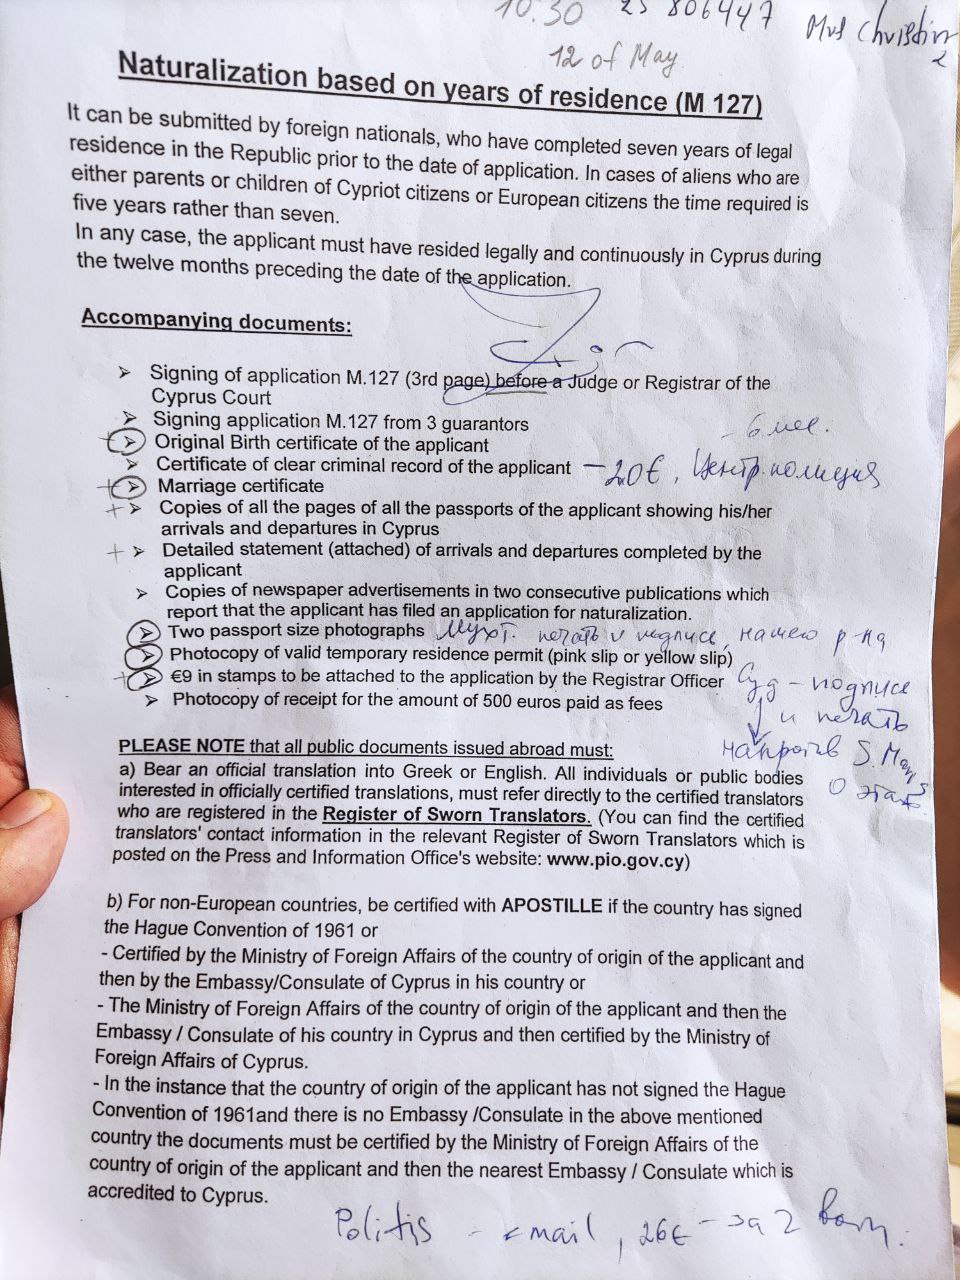 10:30 25 806447 Mrs Christin
2
12 of May
Naturalization based on years of residence (M 127)
It can be submitted by foreign nationals, who have completed seven years of legal
residence in the Republic prior to the date of application. In cases of aliens who are
either parents or children of Cypriot citizens or European citizens the time required is
five years rather than seven.
In any case, the applicant must have resided legally and continuously in Cyprus during
the twelve months preceding the date of the application.
Accompanying documents:
➢ Signing of application M.127 (3rd page) before a Judge or Registrar of the
Cyprus Court
➢ Signing application M.127 from 3 guarantors
- 6 мес.
+ ➢ Original Birth certificate of the applicant
➢ Certificate of clear criminal record of the applicant - 20€, Центр. полиция
+ ➢ Marriage certificate
+ ➢ Copies of all the pages of all the passports of the applicant showing his/her
arrivals and departures in Cyprus
+ ➢ Detailed statement (attached) of arrivals and departures completed by the
applicant
➢ Copies of newspaper advertisements in two consecutive publications which
report that the applicant has filed an application for naturalization.
➢ Two passport size photographs Мухт. печать и подпись, нашего р-на
➢ Photocopy of valid temporary residence permit (pink slip or yellow slip)
+ ➢ €9 in stamps to be attached to the application by the Registrar Officer Суд - подпись
➢ Photocopy of receipt for the amount of 500 euros paid as fees
и печать
напротив S. Mar
0 этаж
PLEASE NOTE that all public documents issued abroad must:
a) Bear an official translation into Greek or English. All individuals or public bodies
interested in officially certified translations, must refer directly to the certified translators
who are registered in the Register of Sworn Translators. (You can find the certified
translators' contact information in the relevant Register of Sworn Translators which is
posted on the Press and Information Office's website: www.pio.gov.cy)
b) For non-European countries, be certified with APOSTILLE if the country has signed
the Hague Convention of 1961 or
- Certified by the Ministry of Foreign Affairs of the country of origin of the applicant and
then by the Embassy/Consulate of Cyprus in his country or
- The Ministry of Foreign Affairs of the country of origin of the applicant and then the
Embassy / Consulate of his country in Cyprus and then certified by the Ministry of
Foreign Affairs of Cyprus.
- In the instance that the country of origin of the applicant has not signed the Hague
Convention of 1961and there is no Embassy /Consulate in the above mentioned
country the documents must be certified by the Ministry of Foreign Affairs of the
country of origin of the applicant and then the nearest Embassy / Consulate which is
accredited to Cyprus.
Politis - email, 26€ - за 2